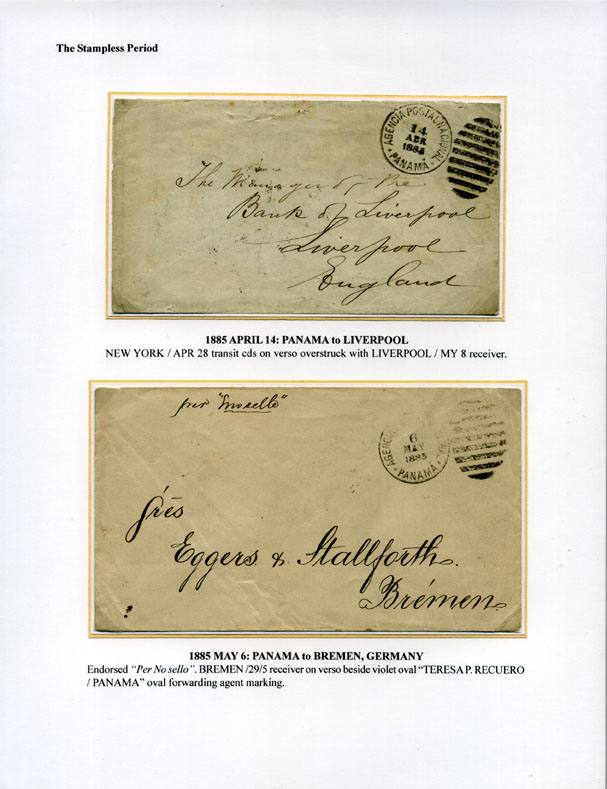 The Stampless Period
AGENCIA POSTAL NACIONAL
14
APR
1885
PANAMA
The Manager of the
Bank of Liverpool
Liverpool
England
1885 APRIL 14: PANAMA to LIVERPOOL
NEW YORK / APR 28 transit cds on verso overstruck with LIVERPOOL / MY 8 receiver.
per "Mosello"
AGENCIA
6
MAY
1885
PANAMA
Eggers & Stallforth.
Brémen
1885 MAY 6: PANAMA to BREMEN, GERMANY
Endorsed "Per No sello". BREMEN /29/5 receiver on verso beside violet oval "TERESA P. RECUERO
/ PANAMA" oval forwarding agent marking.